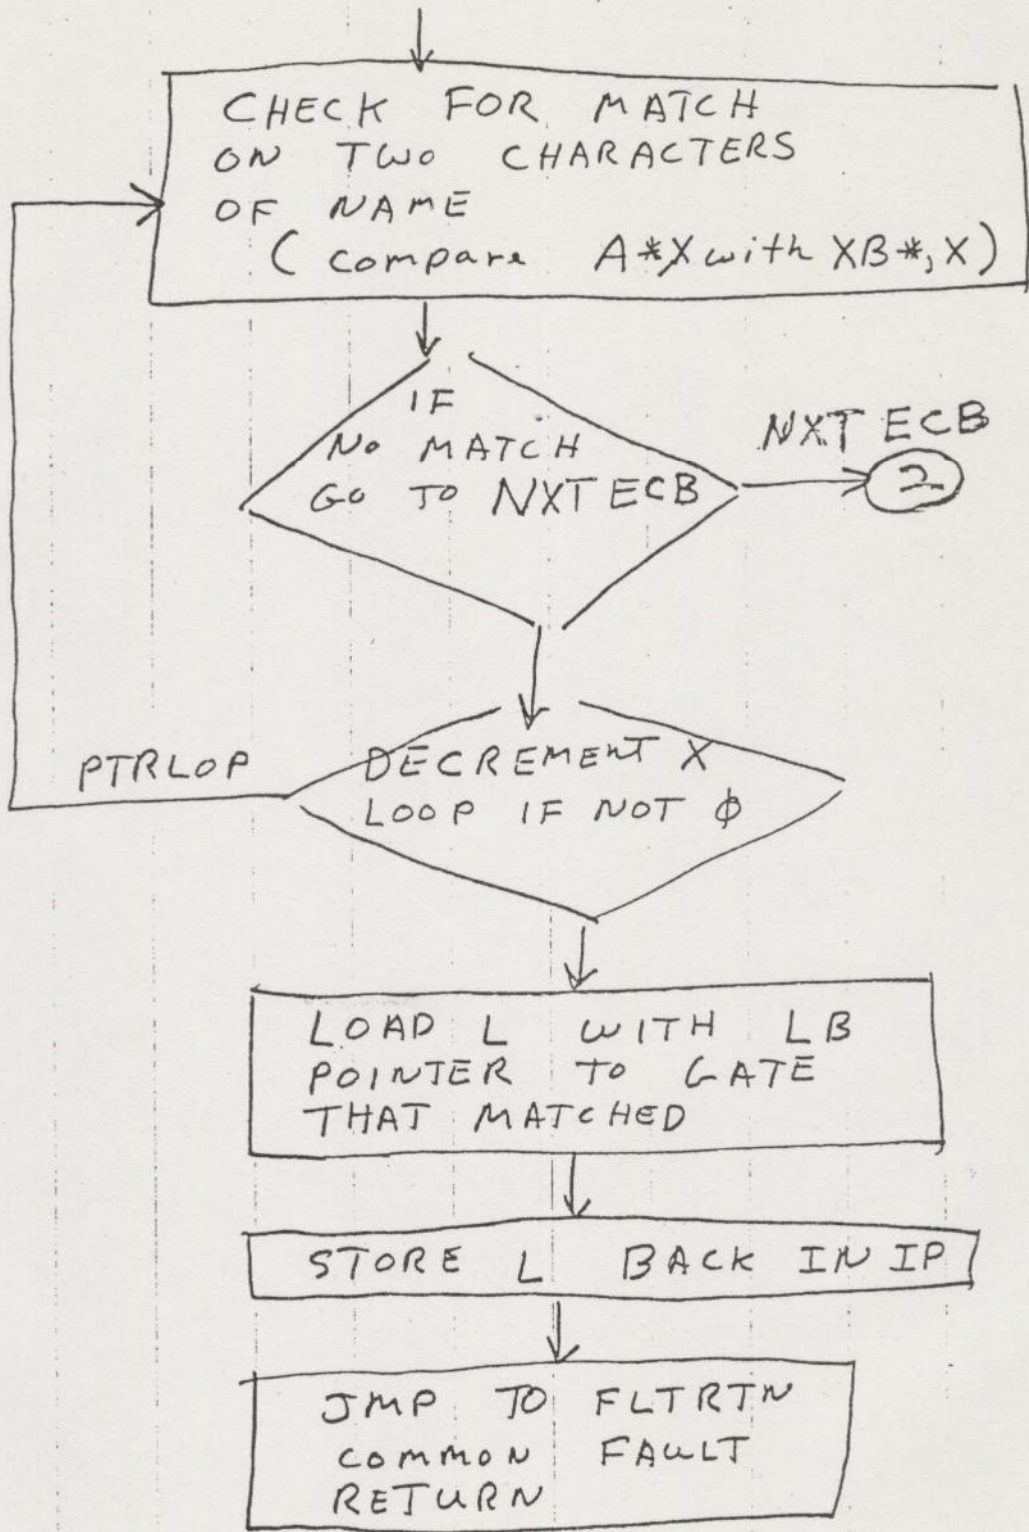 CHECK FOR MATCH
ON TWO CHARACTERS
OF NAME
( compare A*X with XB*, X )
IF
No MATCH
GO TO NXTECB
NXT ECB
2
PTRLOP
DECREMENT X
LOOP IF NOT ϕ
LOAD L WITH LB
POINTER TO GATE
THAT MATCHED
STORE L BACK IN IP
JMP TO FLTRTN
COMMON FAULT
RETURN